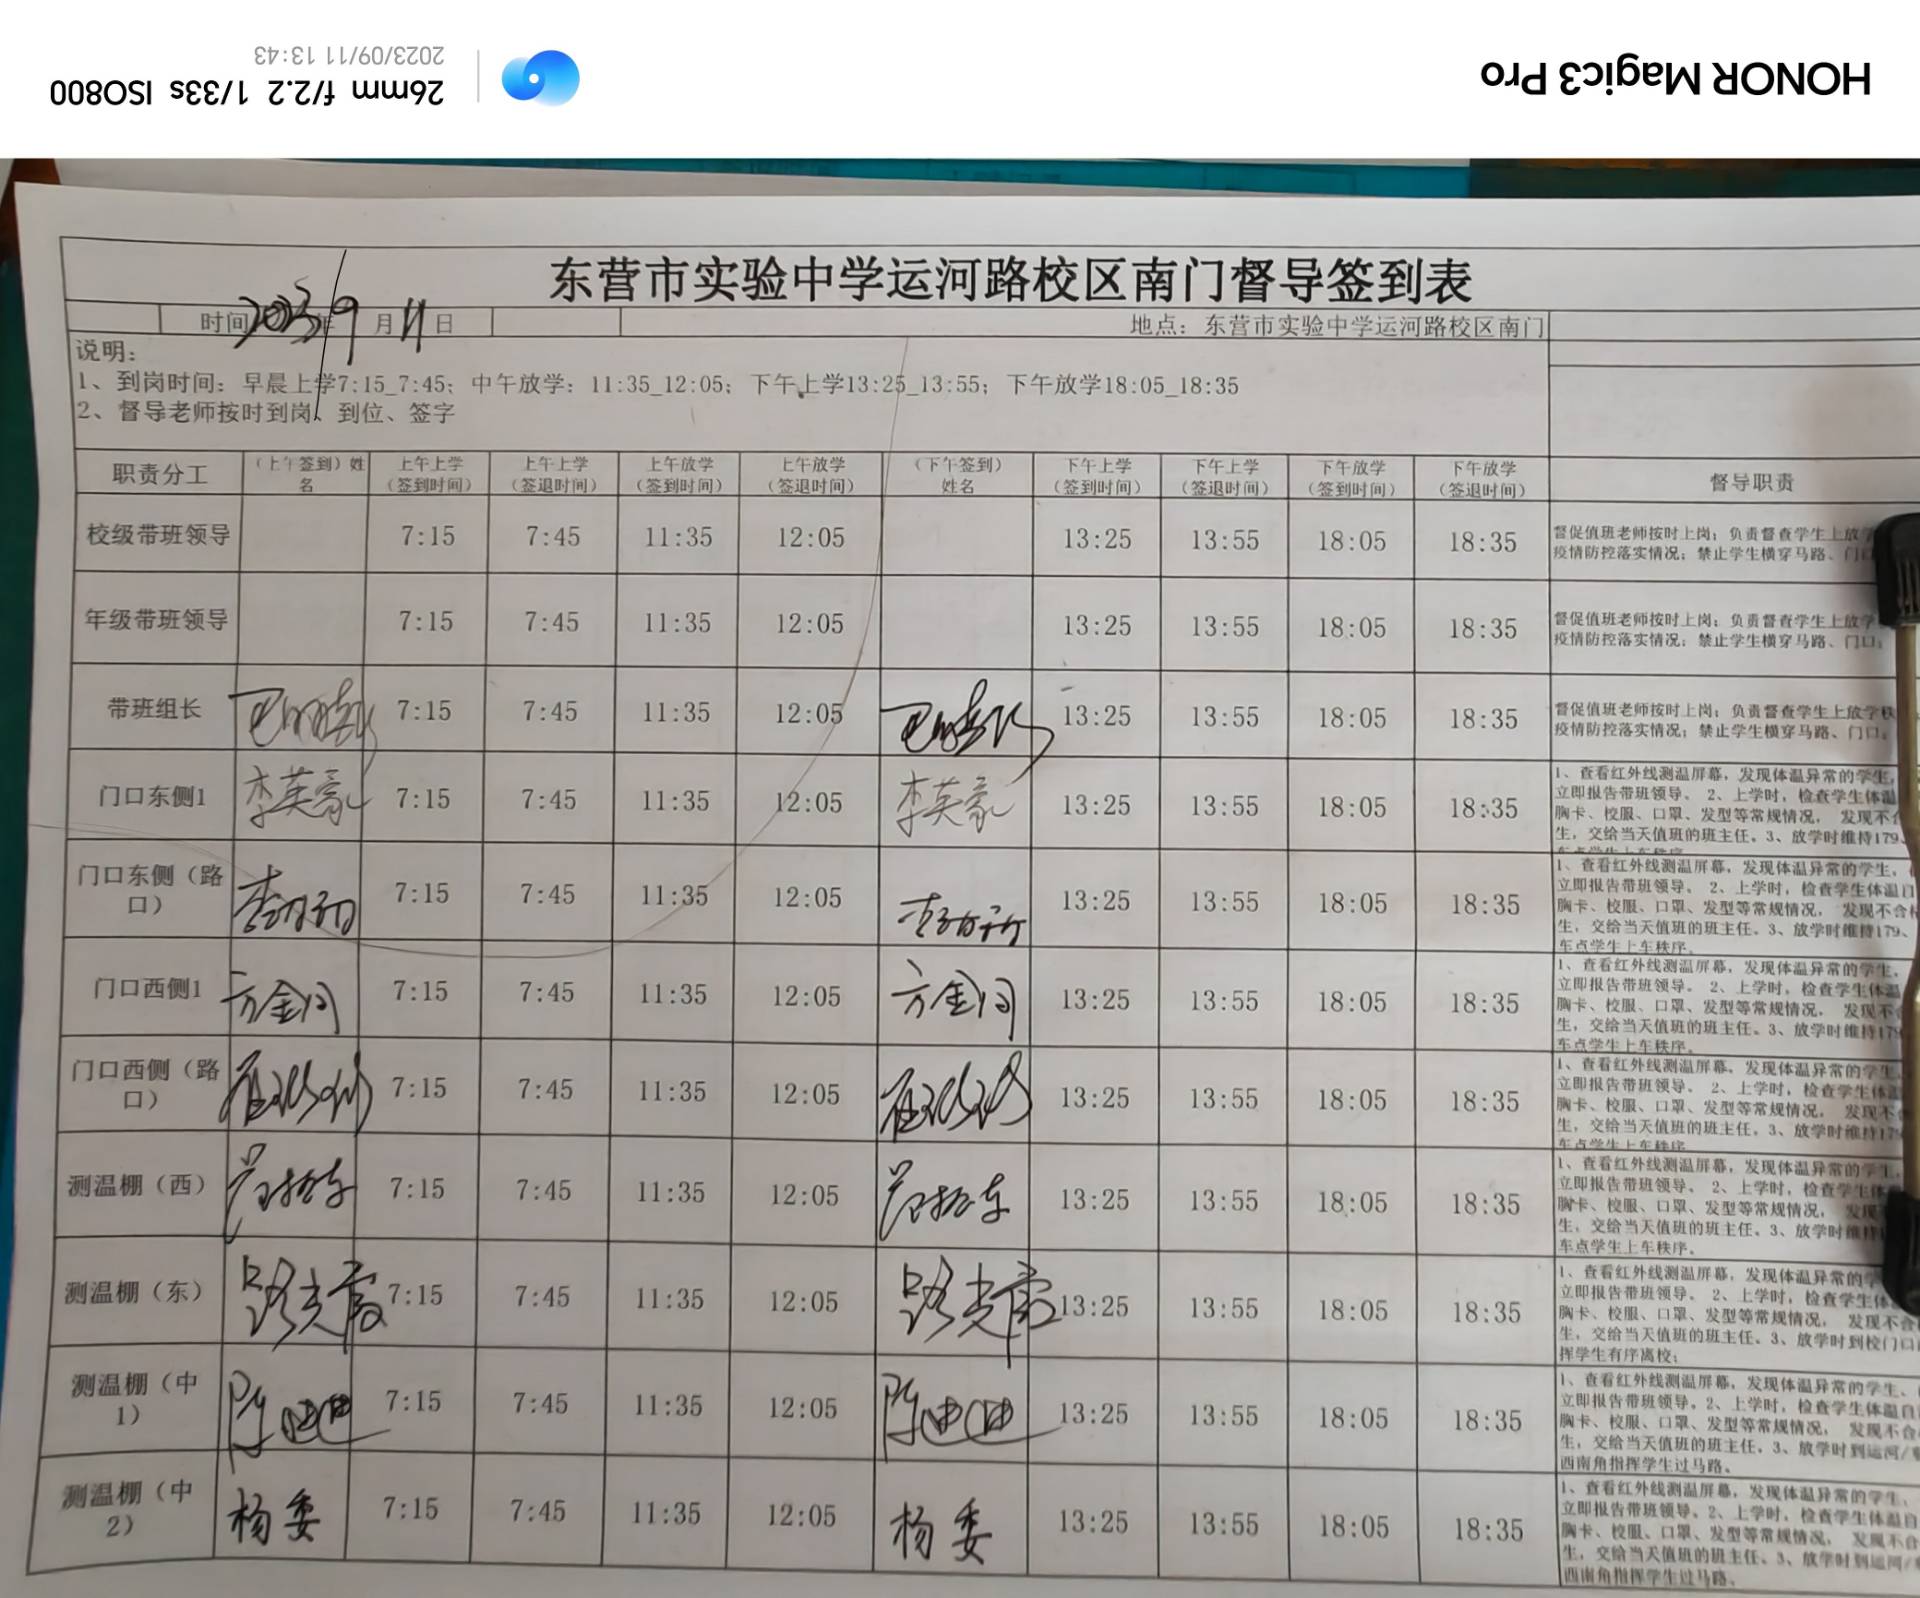 HONOR Magic3 Pro
26mm f/2.2 1/33s ISO800
2023/09/11 13:43
东营市实验中学运河路校区南门督导签到表
时间 2023年9月11日 地点：东营市实验中学运河路校区南门
说明：
1、到岗时间：早晨上学7:15_7:45；中午放学：11:35_12:05；下午上学13:25_13:55；下午放学18:05_18:35
2、督导老师按时到岗、到位、签字
职责分工 （上午签到）姓名 上午上学（签到时间） 上午上学（签退时间） 上午放学（签到时间） 上午放学（签退时间） （下午签到）姓名 下午上学（签到时间） 下午上学（签退时间） 下午放学（签到时间） 下午放学（签退时间） 督导职责
校级带班领导 7:15 7:45 11:35 12:05 13:25 13:55 18:05 18:35
督促值班老师按时上岗；负责督查学生上放学
疫情防控落实情况；禁止学生横穿马路、门口
年级带班领导 7:15 7:45 11:35 12:05 13:25 13:55 18:05 18:35
督促值班老师按时上岗；负责督查学生上放学
疫情防控落实情况；禁止学生横穿马路、门口；
带班组长 7:15 7:45 11:35 12:05 13:25 13:55 18:05 18:35
督促值班老师按时上岗；负责督查学生上放学秩
疫情防控落实情况；禁止学生横穿马路、门口；
门口东侧1 李英豪 7:15 7:45 11:35 12:05 李英豪 13:25 13:55 18:05 18:35
1、查看红外线测温屏幕，发现体温异常的学生，
立即报告带班领导。 2、上学时，检查学生体温
胸卡、校服、口罩、发型等常规情况， 发现不合
生，交给当天值班的班主任。3、放学时维持179、
车点学生上车秩序
门口东侧（路口） 7:15 7:45 11:35 12:05 13:25 13:55 18:05 18:35
1、查看红外线测温屏幕，发现体温异常的学生，
立即报告带班领导。 2、上学时，检查学生体温自
胸卡、校服、口罩、发型等常规情况， 发现不合格
生，交给当天值班的班主任。3、放学时维持179、
车点学生上车秩序。
门口西侧1 7:15 7:45 11:35 12:05 13:25 13:55 18:05 18:35
1、查看红外线测温屏幕，发现体温异常的学生，
立即报告带班领导。 2、上学时，检查学生体温
胸卡、校服、口罩、发型等常规情况， 发现不合
生，交给当天值班的班主任。3、放学时维持179
车点学生上车秩序。
门口西侧（路口） 7:15 7:45 11:35 12:05 13:25 13:55 18:05 18:35
1、查看红外线测温屏幕，发现体温异常的学生，
立即报告带班领导。 2、上学时，检查学生体温
胸卡、校服、口罩、发型等常规情况， 发现不合
生，交给当天值班的班主任。3、放学时维持179
车点学生上车秩序
测温棚（西） 7:15 7:45 11:35 12:05 13:25 13:55 18:05 18:35
1、查看红外线测温屏幕，发现体温异常的学生，
立即报告带班领导。 2、上学时，检查学生体
胸卡、校服、口罩、发型等常规情况， 发现
生，交给当天值班的班主任。3、放学时维持1
车点学生上车秩序。
测温棚（东） 7:15 7:45 11:35 12:05 13:25 13:55 18:05 18:35
1、查看红外线测温屏幕，发现体温异常的学
立即报告带班领导。 2、上学时，检查学生体
胸卡、校服、口罩、发型等常规情况， 发现不合
生，交给当天值班的班主任。3、放学时到校门口
挥学生有序离校；
测温棚（中1） 陈迪迪 7:15 7:45 11:35 12:05 陈迪迪 13:25 13:55 18:05 18:35
1、查看红外线测温屏幕，发现体温异常的学生、
立即报告带班领导。2、上学时，检查学生体温自
胸卡、校服、口罩、发型等常规情况， 发现不合
生，交给当天值班的班主任。3、放学时到运河/
西南角指挥学生过马路。
测温棚（中2） 杨委 7:15 7:45 11:35 12:05 杨委 13:25 13:55 18:05 18:35
1、查看红外线测温屏幕，发现体温异常的学生、
立即报告带班领导。2、上学时，检查学生体温自
胸卡、校服、口罩、发型等常规情况， 发现不合
生，交给当天值班的班主任。3、放学时到运河/
西南角指挥学生过马路。